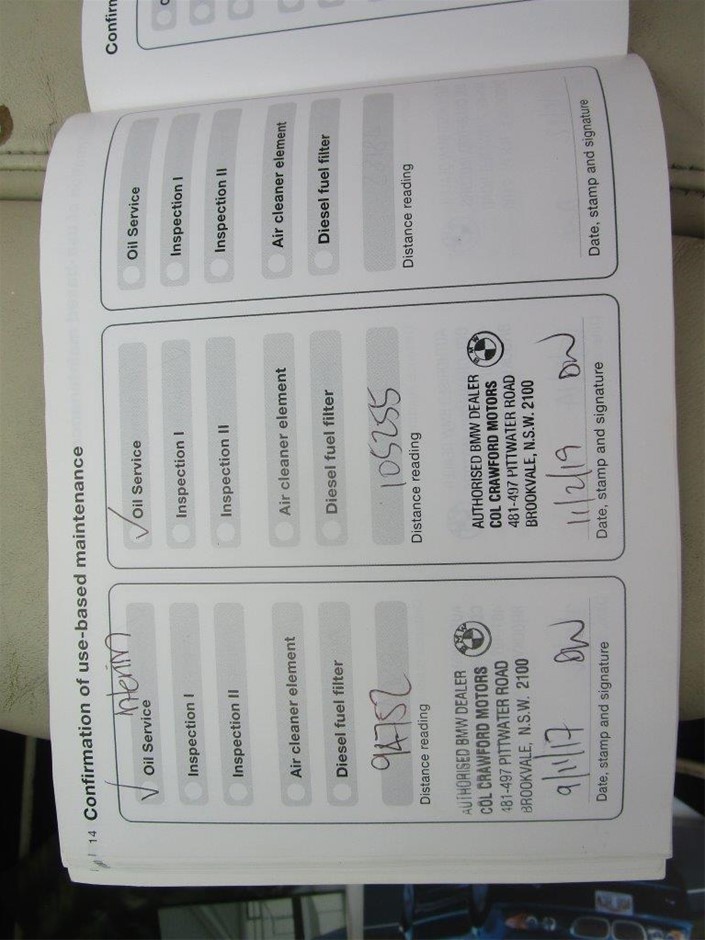 14 Confirmation of use-based maintenance
✓ Oil Service Interim
Inspection I
Inspection II
Air cleaner element
Diesel fuel filter
94752
Distance reading
AUTHORISED BMW DEALER
COL CRAWFORD MOTORS
481-497 PITTWATER ROAD
BROOKVALE, N.S.W. 2100
BMW
9/11/17 DW
Date, stamp and signature
✓ Oil Service
Inspection I
Inspection II
Air cleaner element
Diesel fuel filter
105255
Distance reading
AUTHORISED BMW DEALER
COL CRAWFORD MOTORS
481-497 PITTWATER ROAD
BROOKVALE, N.S.W. 2100
BMW
11/2/19 DW
Date, stamp and signature
Oil Service
Inspection I
Inspection II
Air cleaner element
Diesel fuel filter
Distance reading
Date, stamp and signature
Confirm